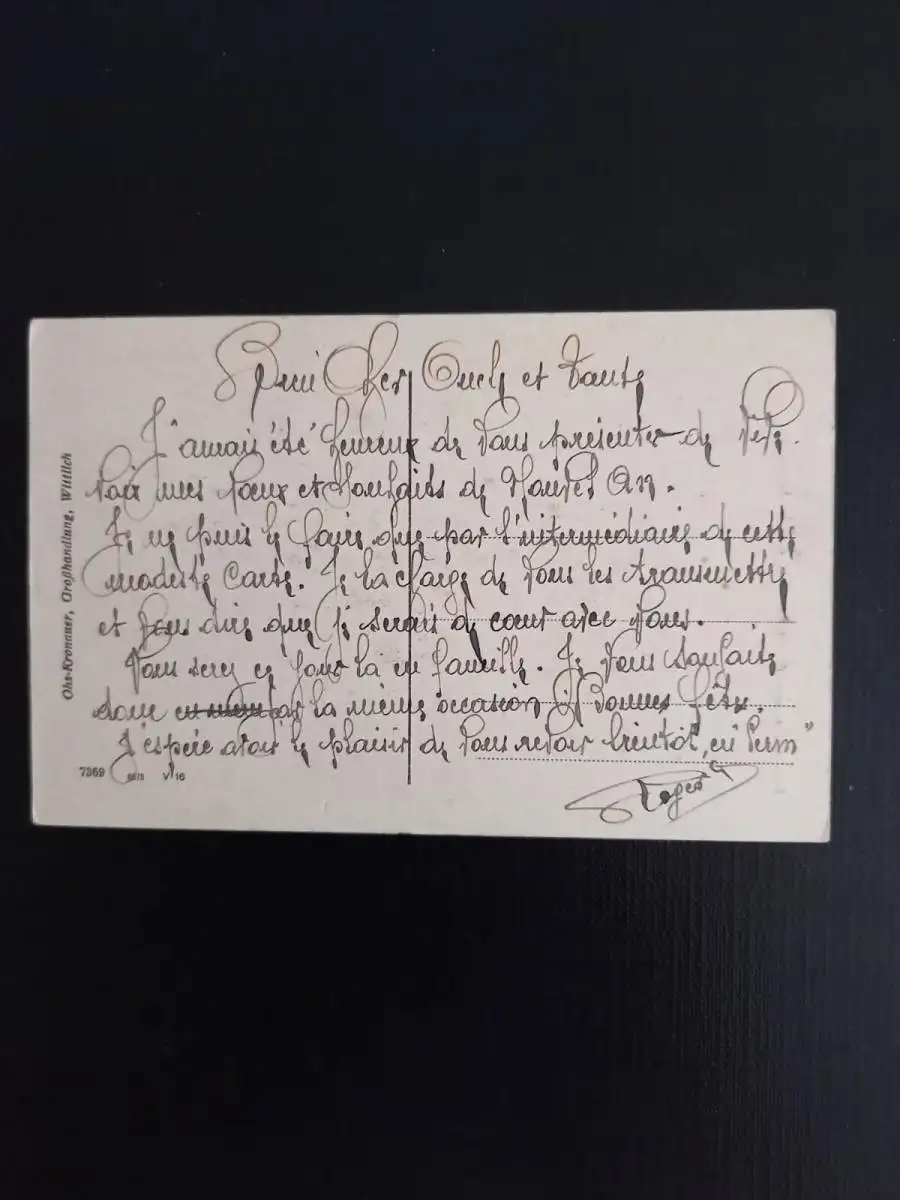 Cher Oncle et Tante
J'aurais été heureux de Vous presenter de Vive
Voix mes Voeux et Souhaits de Nouvel An.
Je ne puis le faire que par l'intermédiaire de cette
modeste Carte. Je la charge de Vous les transmettre
et Vous dire que je serais de coeur avec Vous.
Vous serez en famille. Je Vous Souhaite
donc par la même occasion de Bonnes fêtes.
J'espère avoir le plaisir de Vous revoir bientôt "en Perm"
Roger
Ohs-Kronauer, Großhandlung, Wittlich
7369 V/16